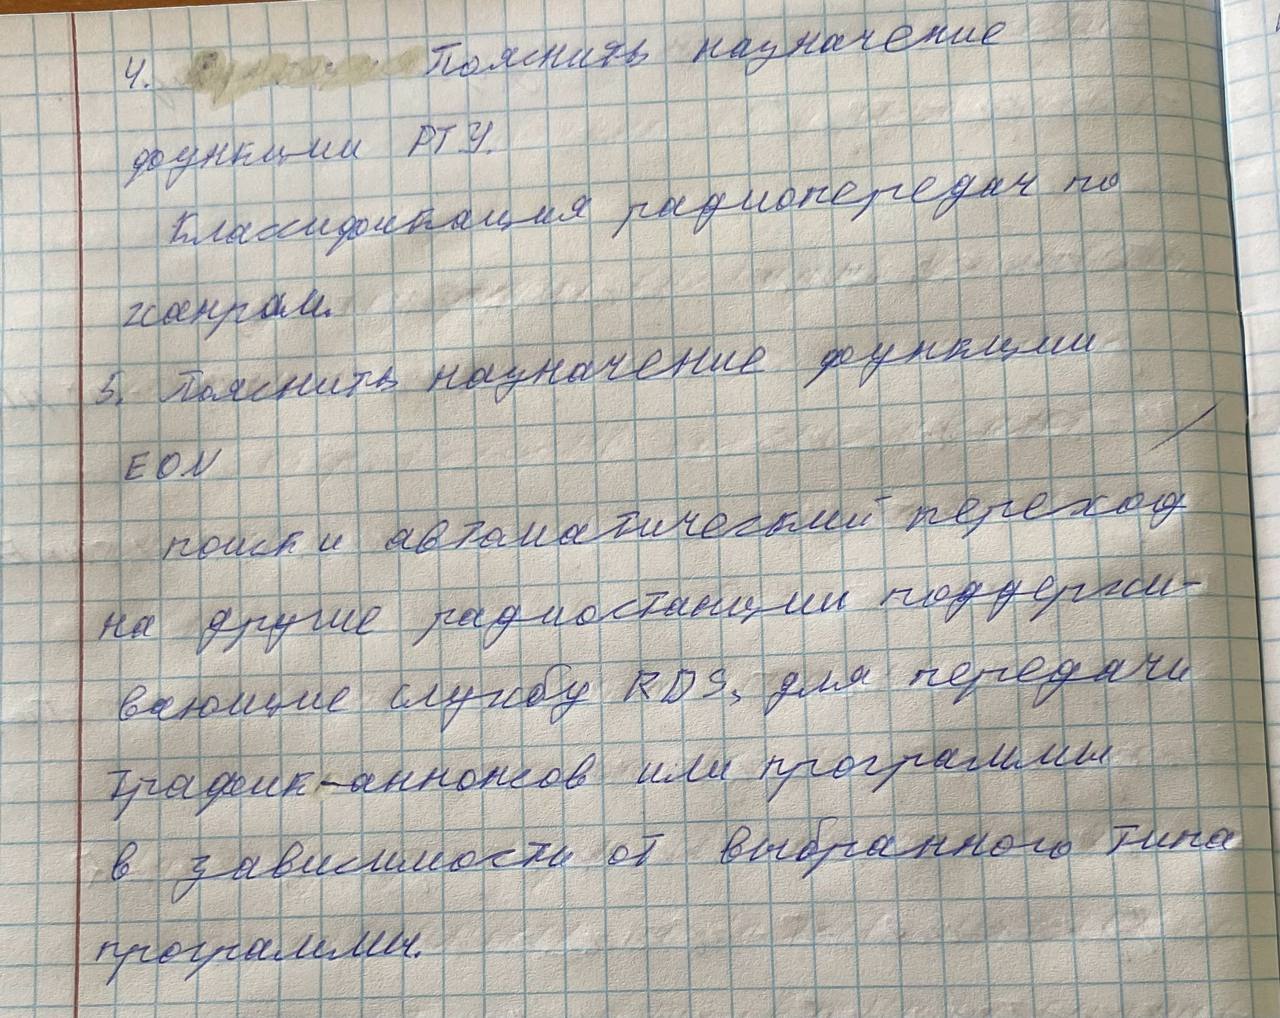 4. Пояснить назначение
функции PTY.
Классификация радиопередач по
жанрам.
5. Пояснить назначение функции
EON
поиск и автоматический переход
на другие радиостанции поддержи-
вающие службу RDS, для передачи
трафик-аннонсов или программы
в зависимости от выбранного типа
программы.